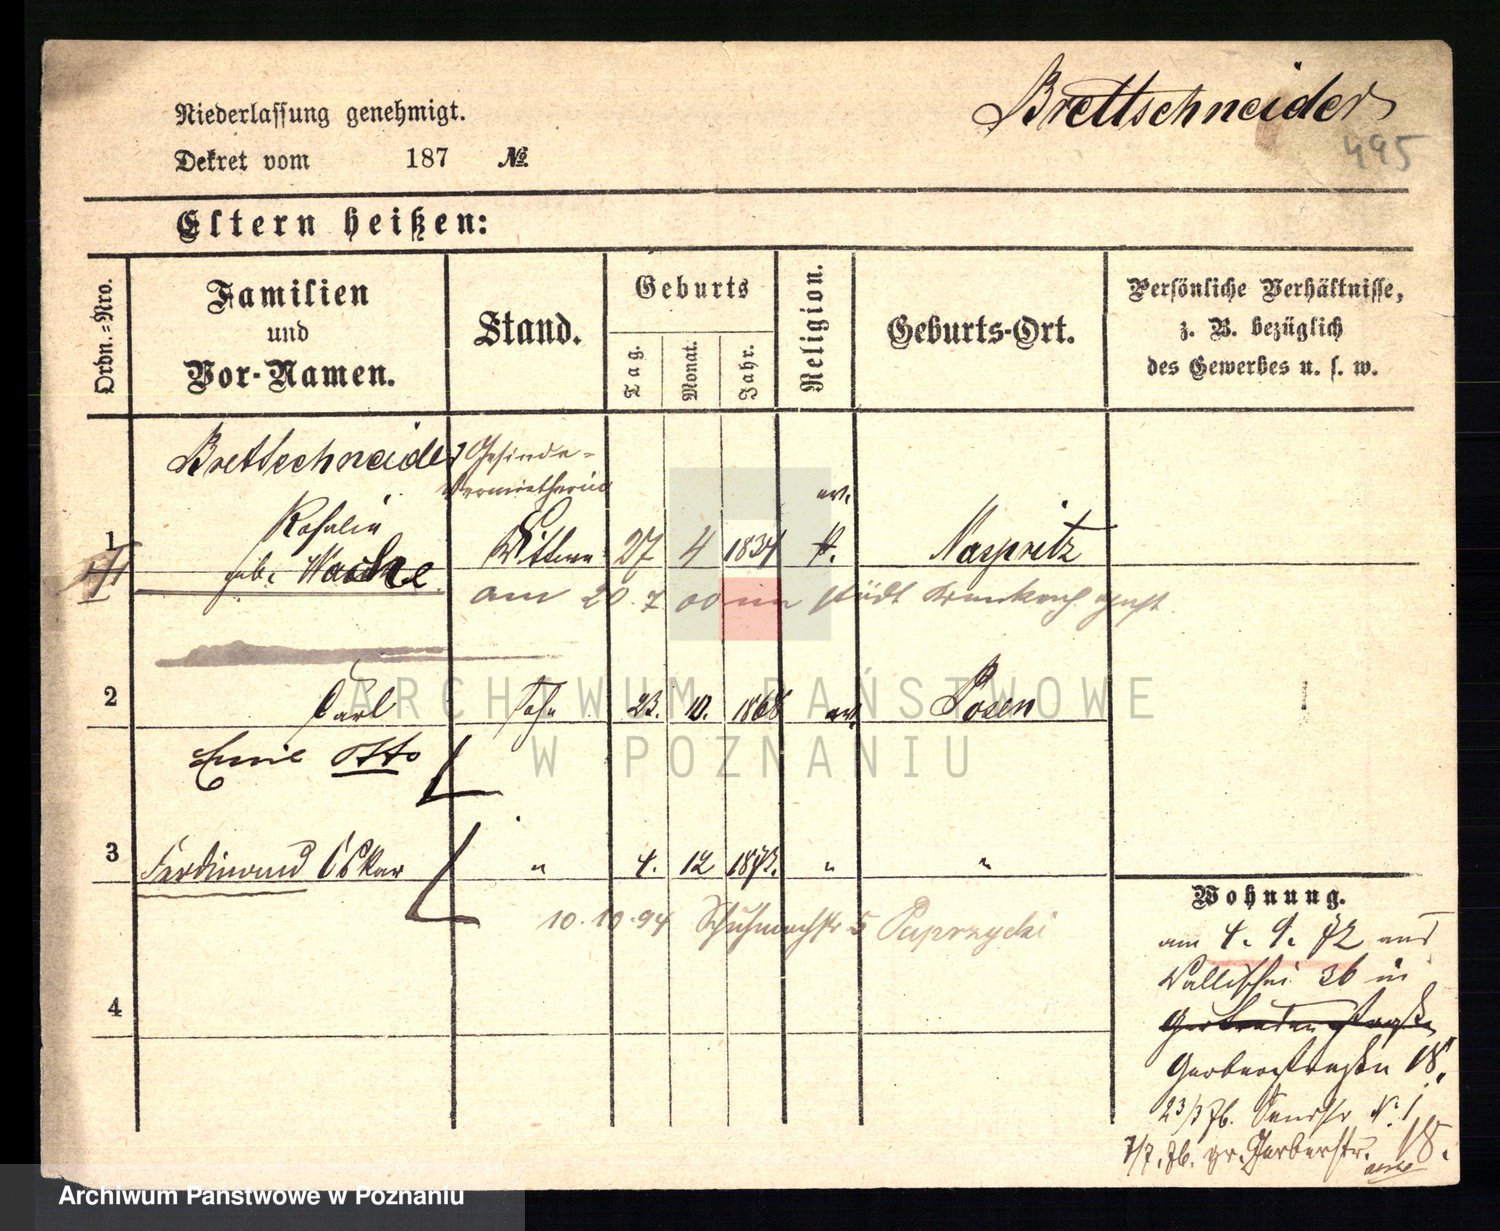 Brettschneider
495
Niederlassung genehmigt.
Dekret vom 187 No.
Eltern heißen:
Ordn.-Nro.
Familien
und
Vor-Namen.
Stand.
Geburts
Tag.
Monat.
Jahr.
Religion.
Geburts-Ort.
Persönliche Verhältnisse,
z. B. bezüglich
des Gewerbes u. s. w.
Brettschneider Gesinde-
Vermietherin
ev.
1 Rosalie Wittwe 27 4 1834 Naspritz
geb. Wache
am 20.7 00 im städt
2 Carl Sohn 23. 10. 1868 ev. Posen
Emil Otto
3 Ferdinand Oskar " 4. 12 1873. " "
10.10.94 Schuhmachstr 5 Paprzycki
4
Wohnung.
am 4. 9. 72 aus
Wallischei 36 in
Gerberstraße 18.
23/3 76. Sandstr N. 1
7/7. 76. gr. Gerberstr. 18.
ARCHIWUM PAŃSTWOWE
W POZNANIU
Archiwum Państwowe w Poznaniu